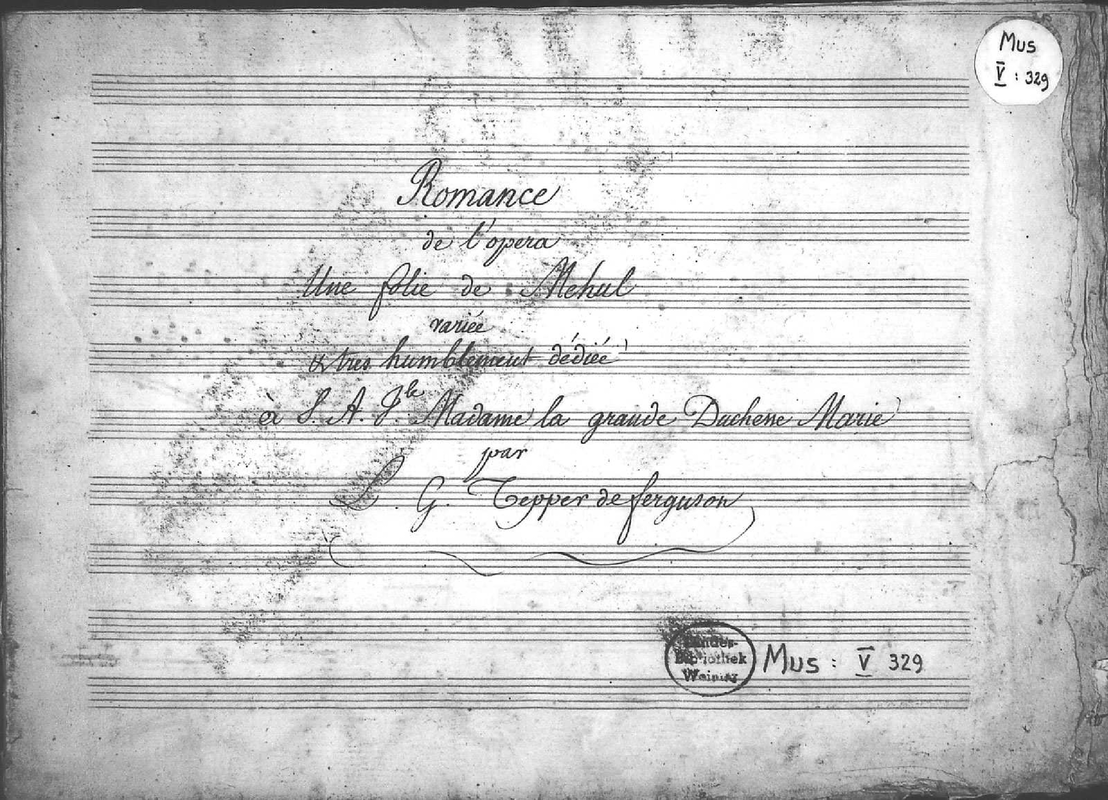 Mus
V : 329
Romance
de l'opera
Une folie de Mehul
variée
& tres humblement dédiée
à S. A. J.le Madame la grande Duchene Marie
par
L. G. Tepper de ferguson
Landes-
Bibliothek
Weimar
Mus : V 329